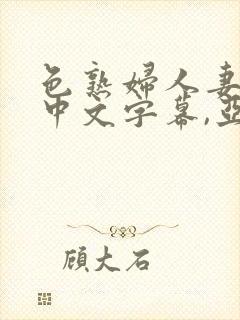 色熟婦人妻
中文字幕,亞
顾大石